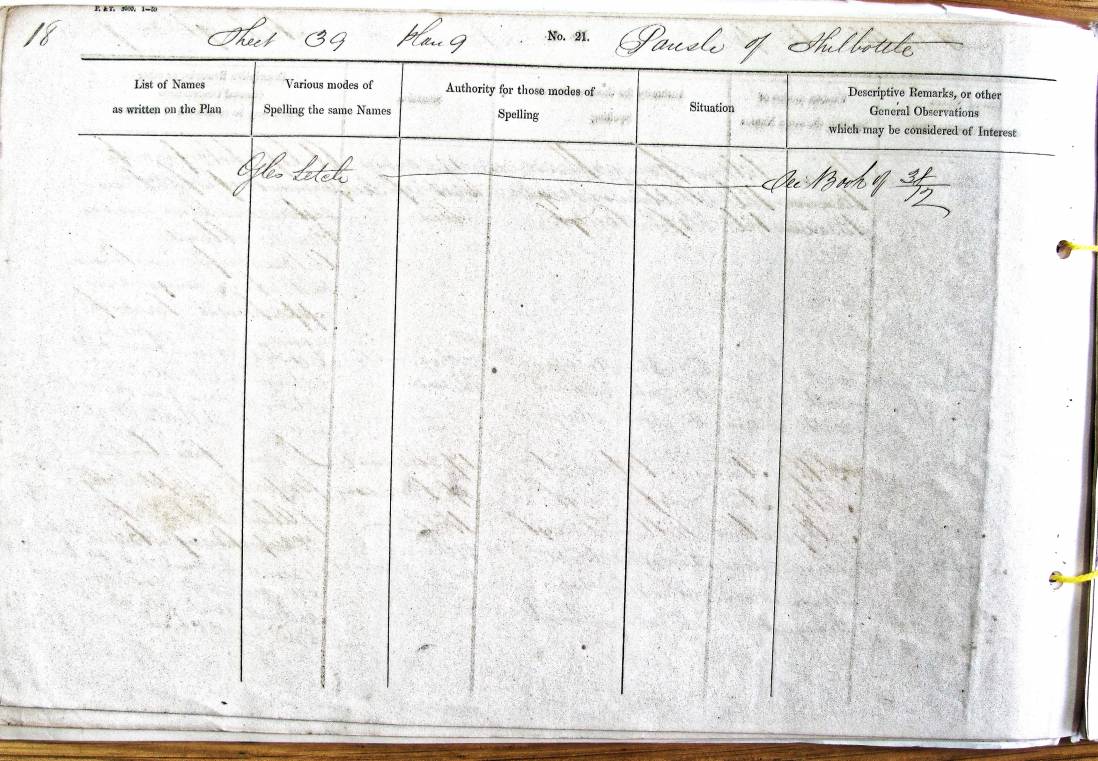 18
Sheet 39 Plan 9 No. 21. Parish of Shilbottle
List of Names
as written on the Plan
Various modes of
Spelling the same Names
Authority for those modes of
Spelling
Situation
Descriptive Remarks, or other
General Observations
which may be considered of Interest
Letch See Book of